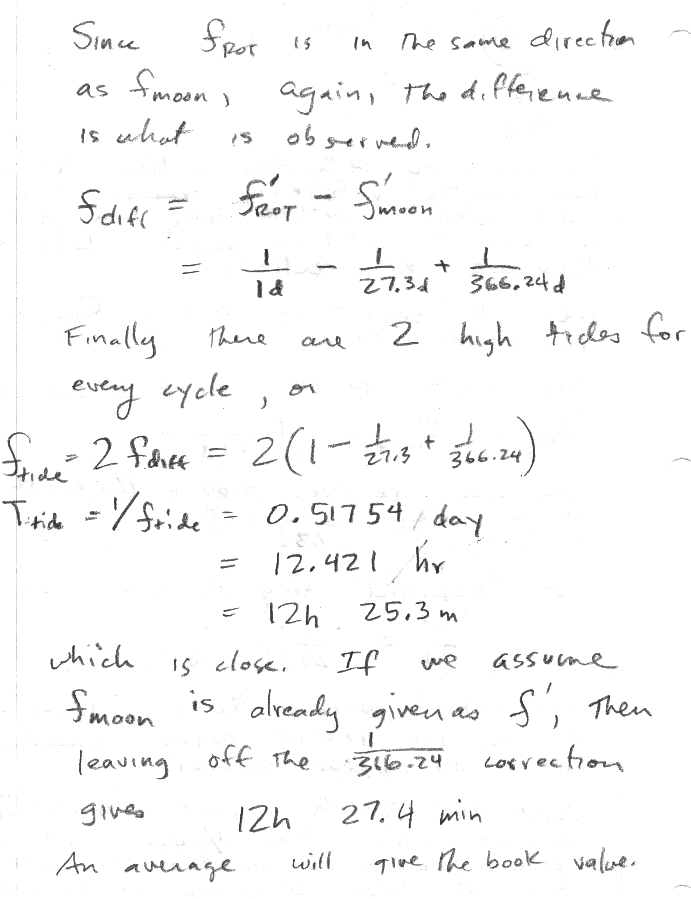 Since f_ROT is in the same direction
as f_moon, again, the difference
is what is observed.
f_diff = f'_ROT - f'_moon
= 1/1d - 1/27.3d + 1/366.24d
Finally there are 2 high tides for
every cycle, or
f_tide = 2 f_diff = 2(1 - 1/27.3 + 1/366.24)
T_tide = 1/f_tide = 0.51754 day
= 12.421 hr
= 12h 25.3m
which is close. If we assume
f_moon is already given as f', then
leaving off the 1/366.24 correction
gives 12h 27.4 min
An average will give the book value.